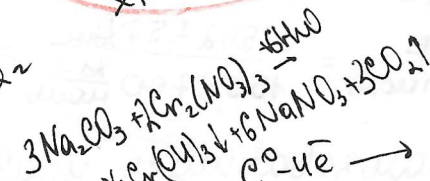 3Na₂CO₃ + 2Cr₂(NO₃)₃ +6H₂O →
Cr(OH)₃↓ + 6NaNO₃ + 3CO₂↑
-4ē →